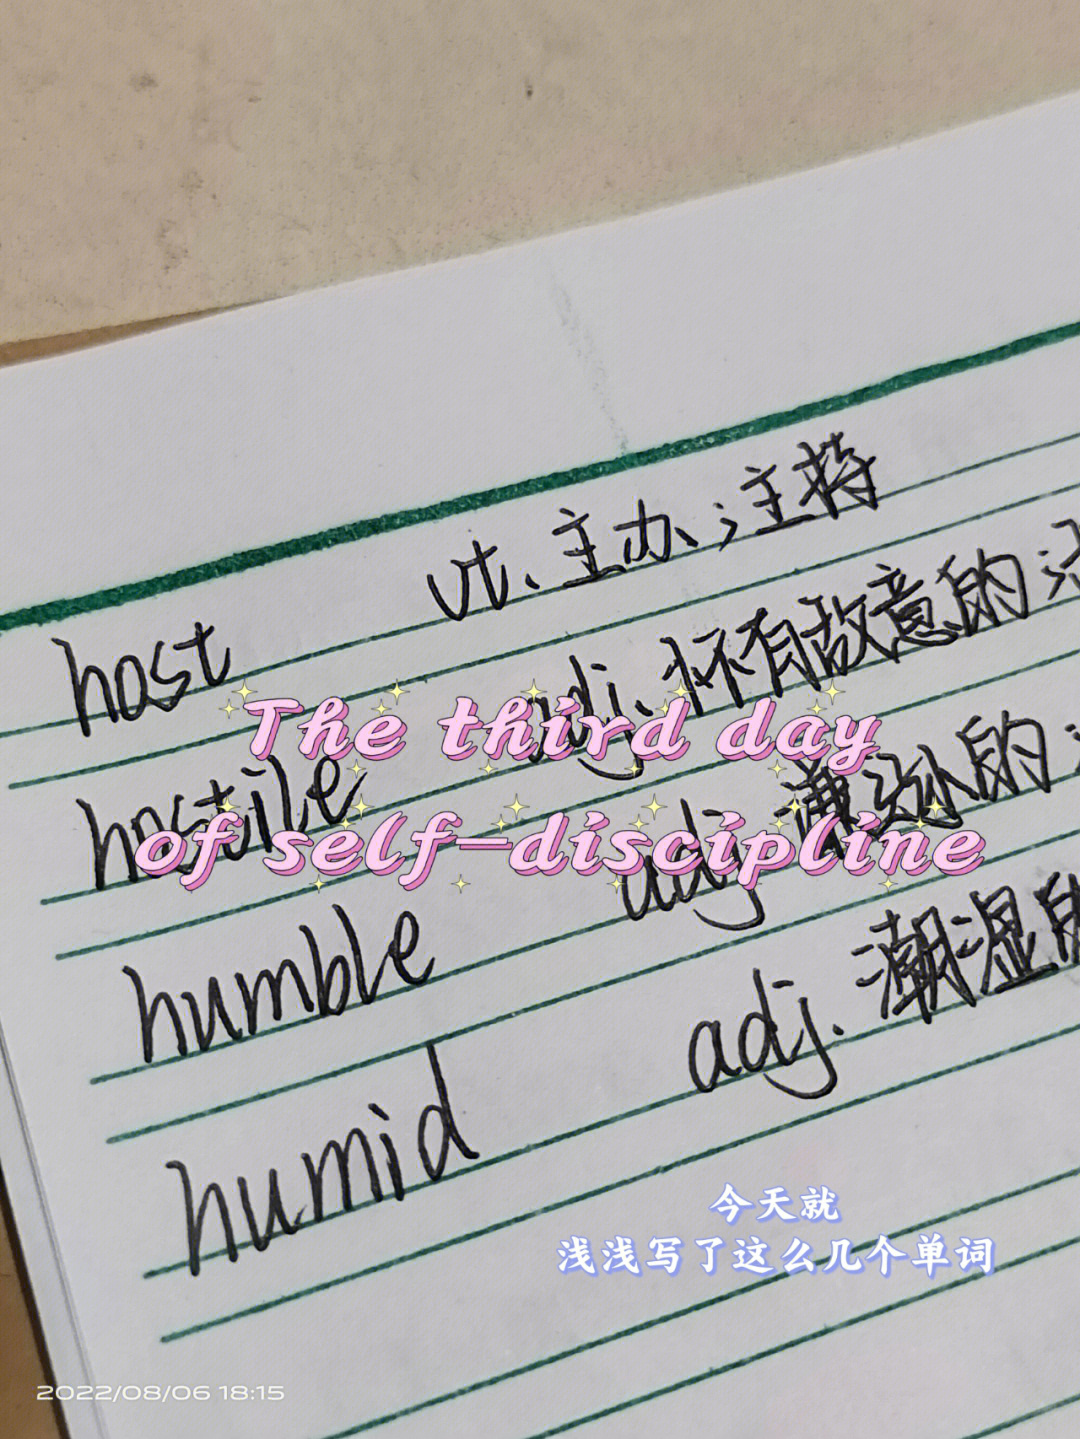 host vt. 主办；主持
hostile adj. 怀有敌意的；
humble adj. 谦逊的；
humid adj. 潮湿的
The third day
of self-discipline
今天就
浅浅写了这么几个单词
2022/08/06 18:15